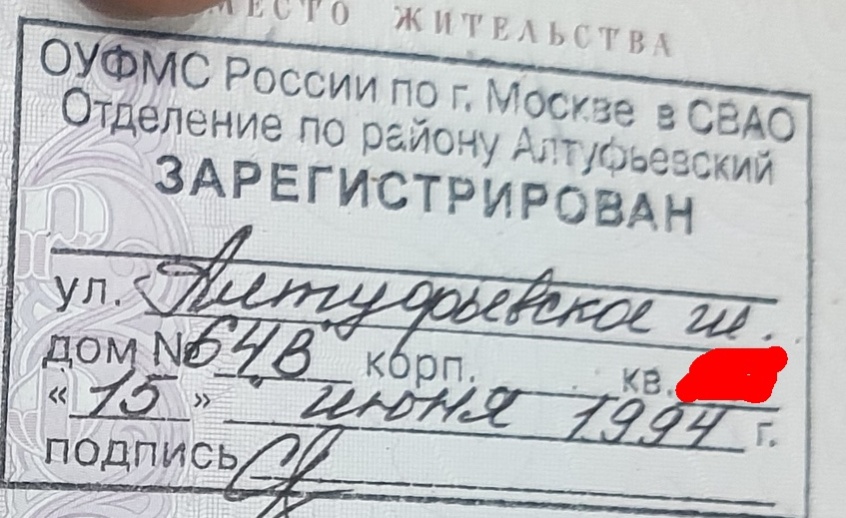 МЕСТО ЖИТЕЛЬСТВА
ОУФМС России по г. Москве в СВАО
Отделение по району Алтуфьевский
ЗАРЕГИСТРИРОВАН
ул. Алтуфьевское ш.
дом № 64В корп. кв.
« 15 » июня 1994 г.
подпись